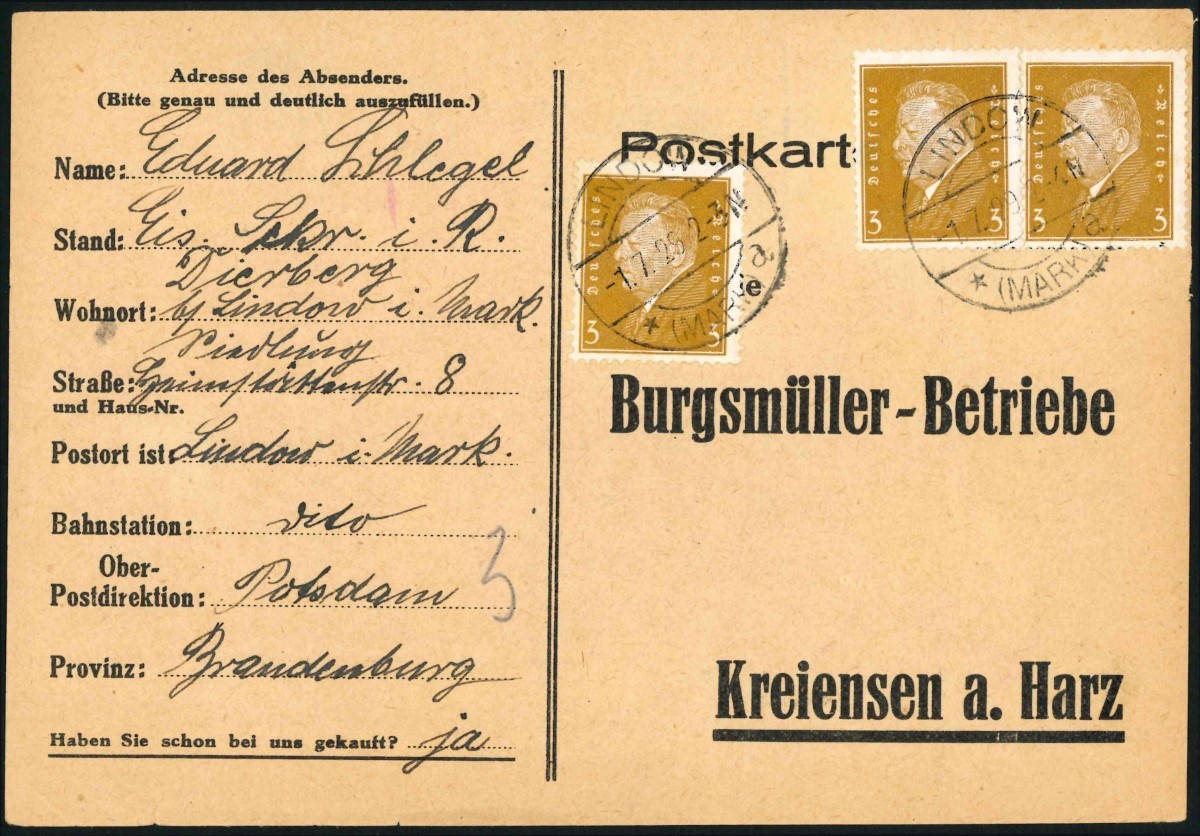 Adresse des Absenders.
(Bitte genau und deutlich auszufüllen.)
Name: Eduard Schlegel
Stand: Eis. Sekr. i. R.
Dierberg
Wohnort: b/ Lindow i. Mark.
Siedlung
Straße: Heimstättenstr. 8
und Haus-Nr.
Postort ist Lindow i. Mark.
Bahnstation: dito
Ober-
Postdirektion: Potsdam
3
Provinz: Brandenburg
Haben Sie schon bei uns gekauft? ja
Postkart
Deutsches Reich
3 3
LINDOW
-1.7.29 2-3 N
* (MARK) a
Deutsches Reich
3 3
Deutsches Reich
3 3
LINDOW
-1.7.29
* (MARK) a
ie
Burgsmüller-Betriebe
Kreiensen a. Harz